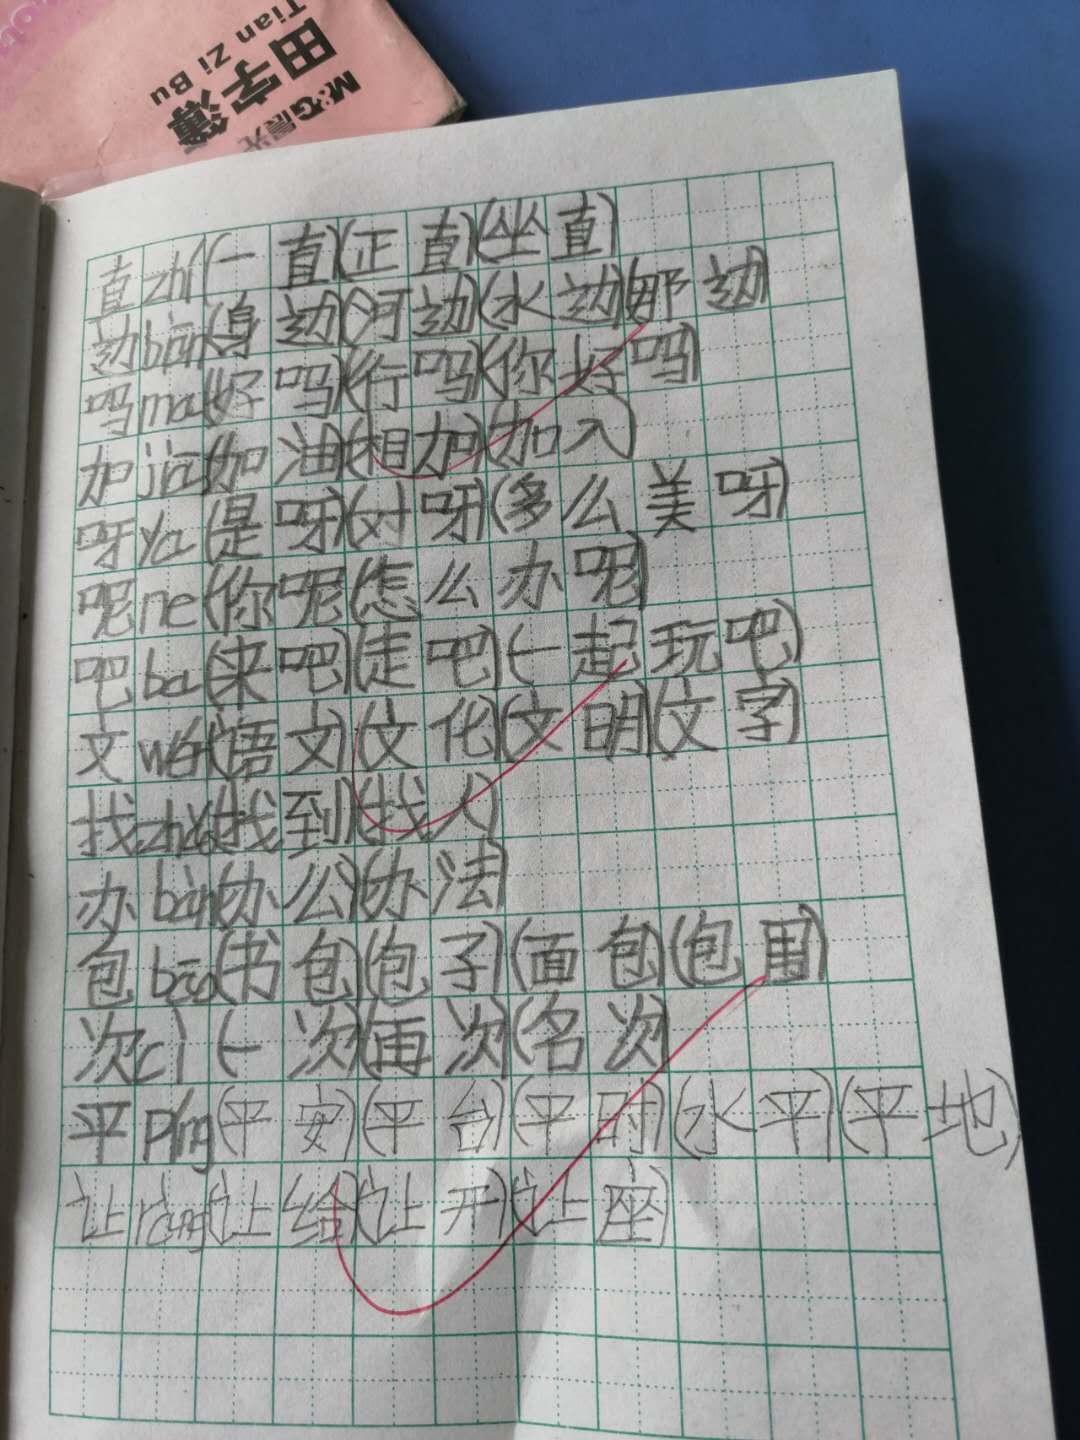 田字簿
Tian Zi Bu
M&G晨光
直zhí(一直)(正直)(坐直)
边biān(身边)(河边)(水边)(那边)
吗ma(好吗)(行吗)(你好吗)
加jiā(加油)(相加)(加入)
呀ya(是呀)(对呀)(多么美呀)
呢ne(你呢)(怎么办呢)
吧ba(来吧)(走吧)(一起玩吧)
文wén(语文)(文化)(文明)(文字)
找zhǎo(找到)(找人)
办bàn(办公)(办法)
包bāo(书包)(包子)(面包)(包围)
次cì(一次)(再次)(名次)
平píng(平安)(平台)(平时)(水平)(平地)
让ràng(让给)(让开)(让座)